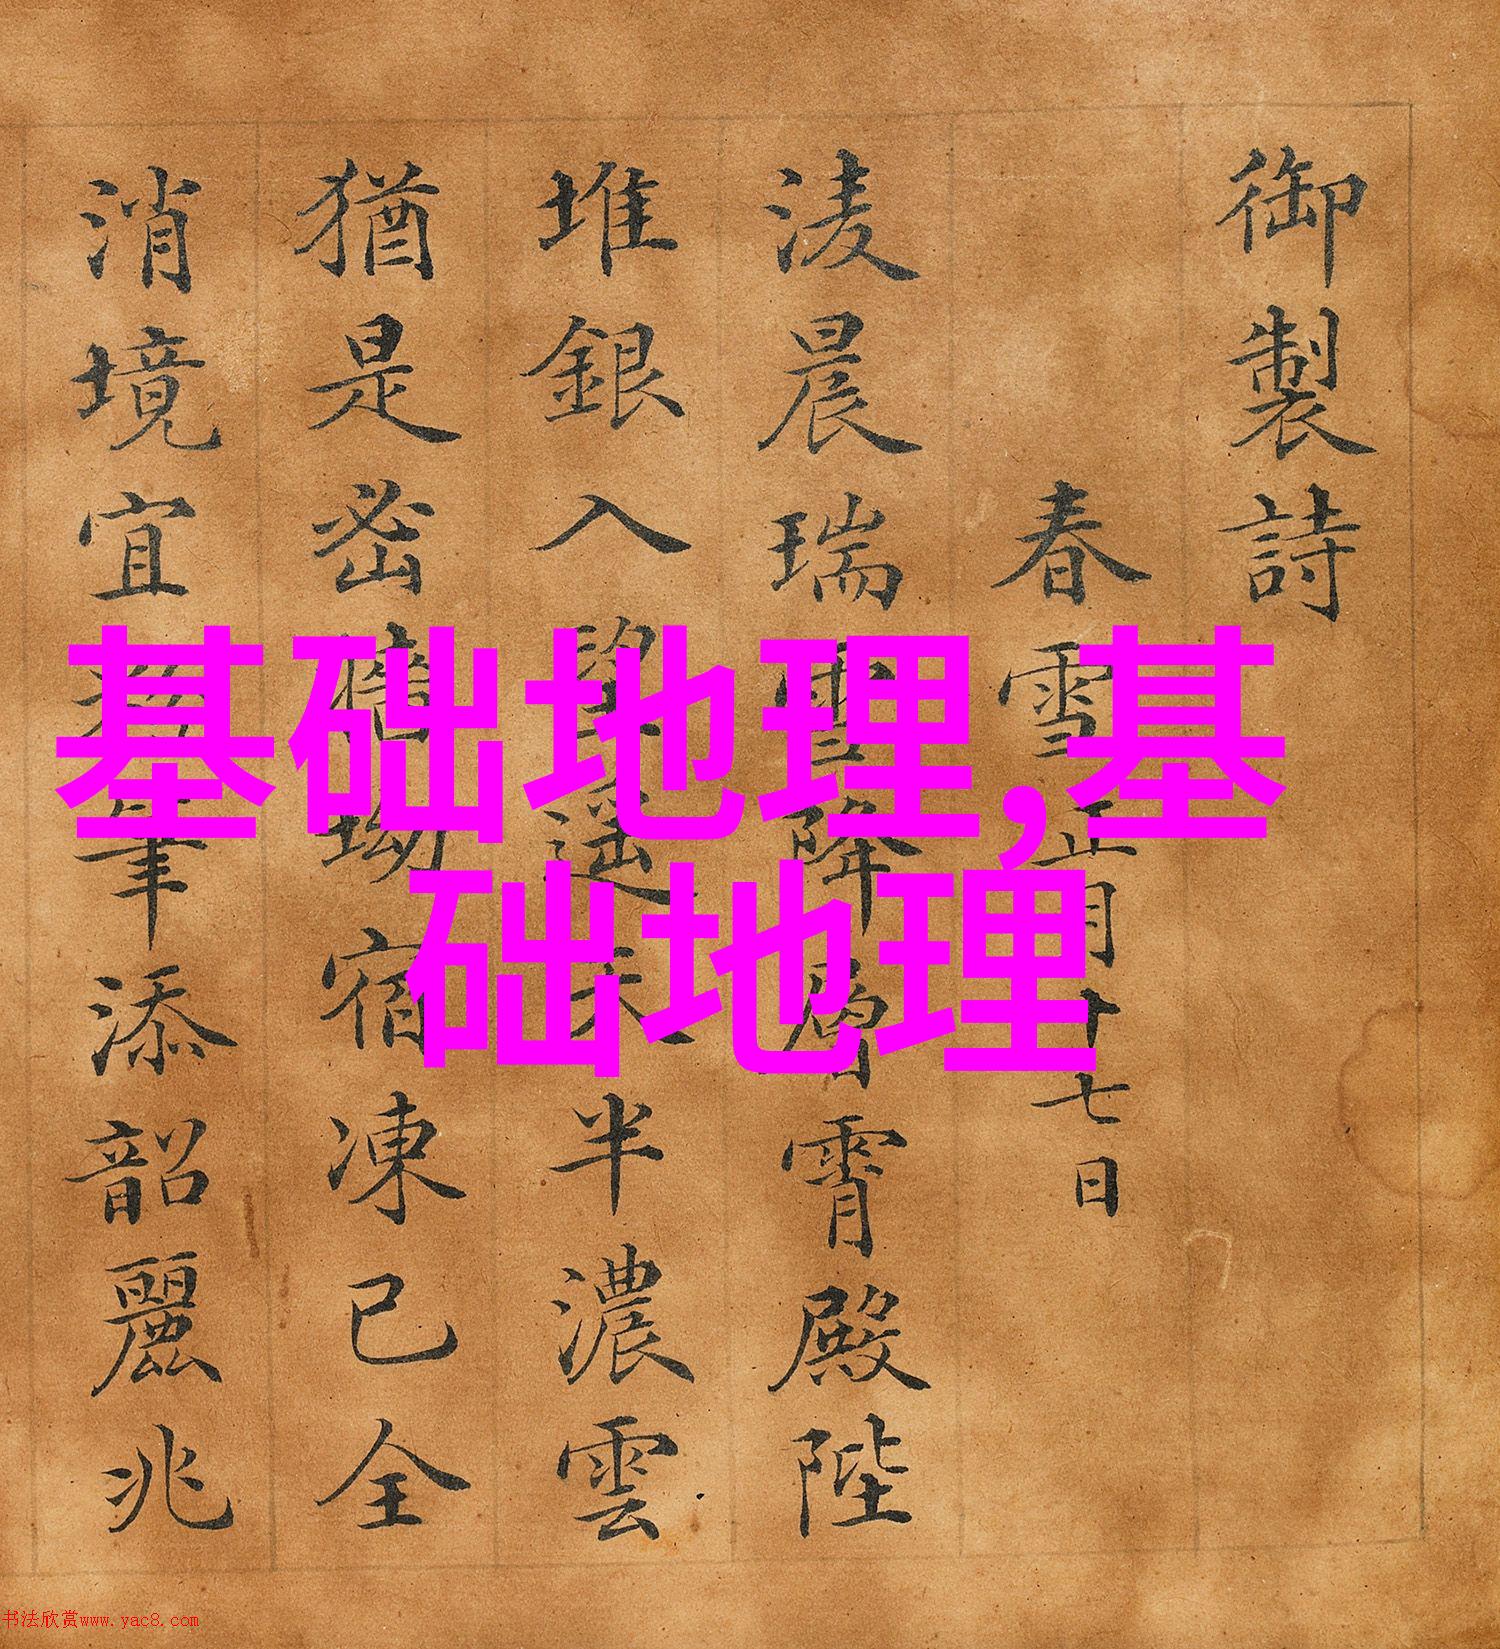 御製詩
春雪正月十七日
淩晨瑞雪降層霄殿陛
堆銀入望遥天半濃雲
猶是密牆坳宿凍已全
消境宜揮筆添韶麗兆
基础地理,基
础地理
书法欣赏www.yac8.com